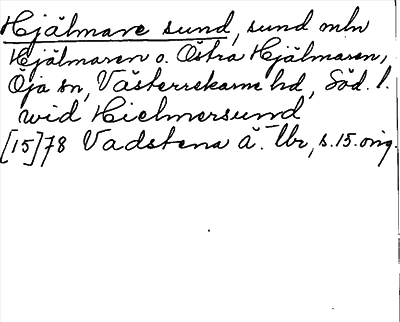 Hjälmare sund, sund mln
Hjälmaren o. Östra Hjälmaren,
Öja sn, Västerrekarne hd, Söd. l.
wid Hielmersund
[15]78 Vadstena ä. lbr, s. 15. orig.